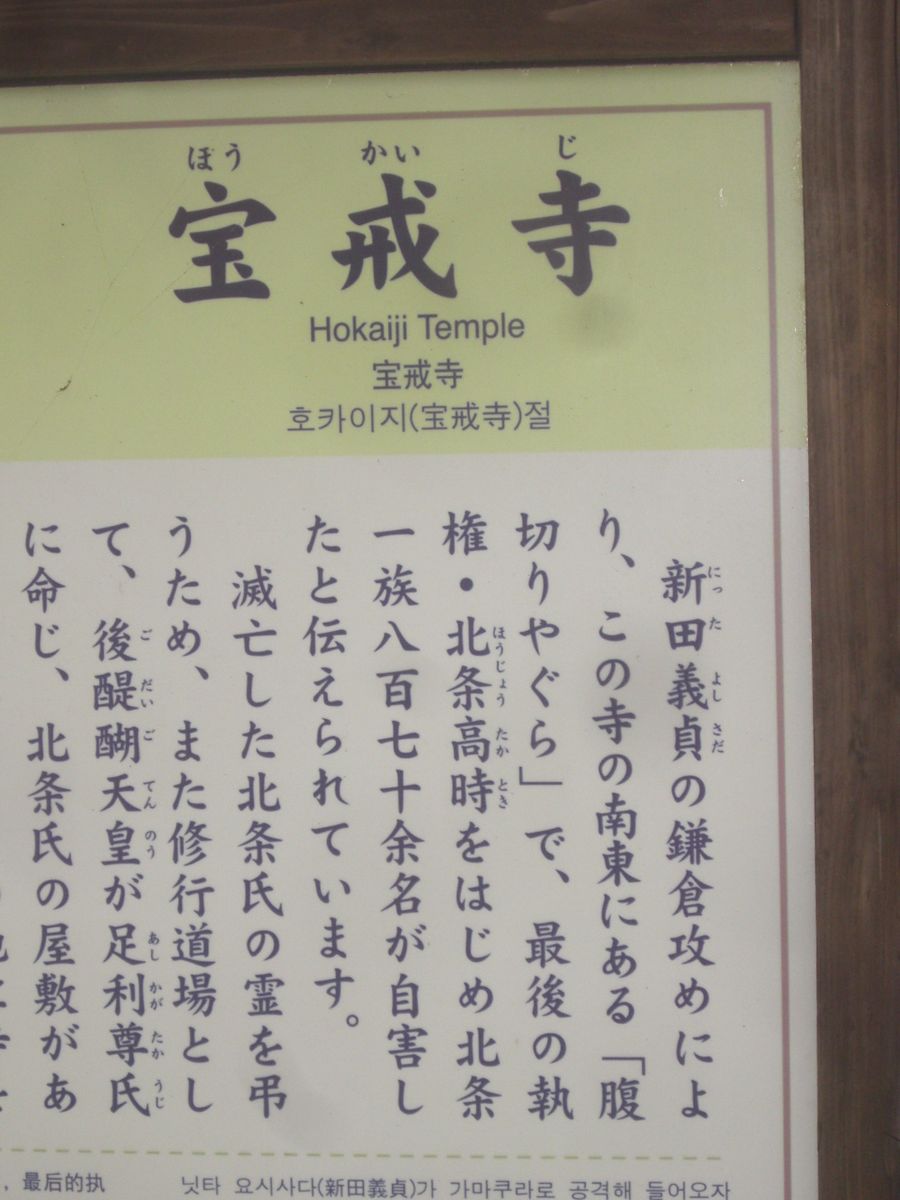 ほう かい じ
宝戒寺
Hokaiji Temple
宝戒寺
호카이지(宝戒寺)절
新田義貞の鎌倉攻めによ
にっ た よし さだ
り、この寺の南東にある「腹
切りやぐら」で、最後の執
権・北条高時をはじめ北条
ほうじょう たか とき
一族八百七十余名が自害し
たと伝えられています。
滅亡した北条氏の霊を弔
うため、また修行道場とし
て、後醍醐天皇が足利尊氏
ご だい ご てん のう あし かが たか うじ
に命じ、北条氏の屋敷があ
, 最后的执
닛타 요시사다(新田義貞)가 가마쿠라로 공격해 들어오자